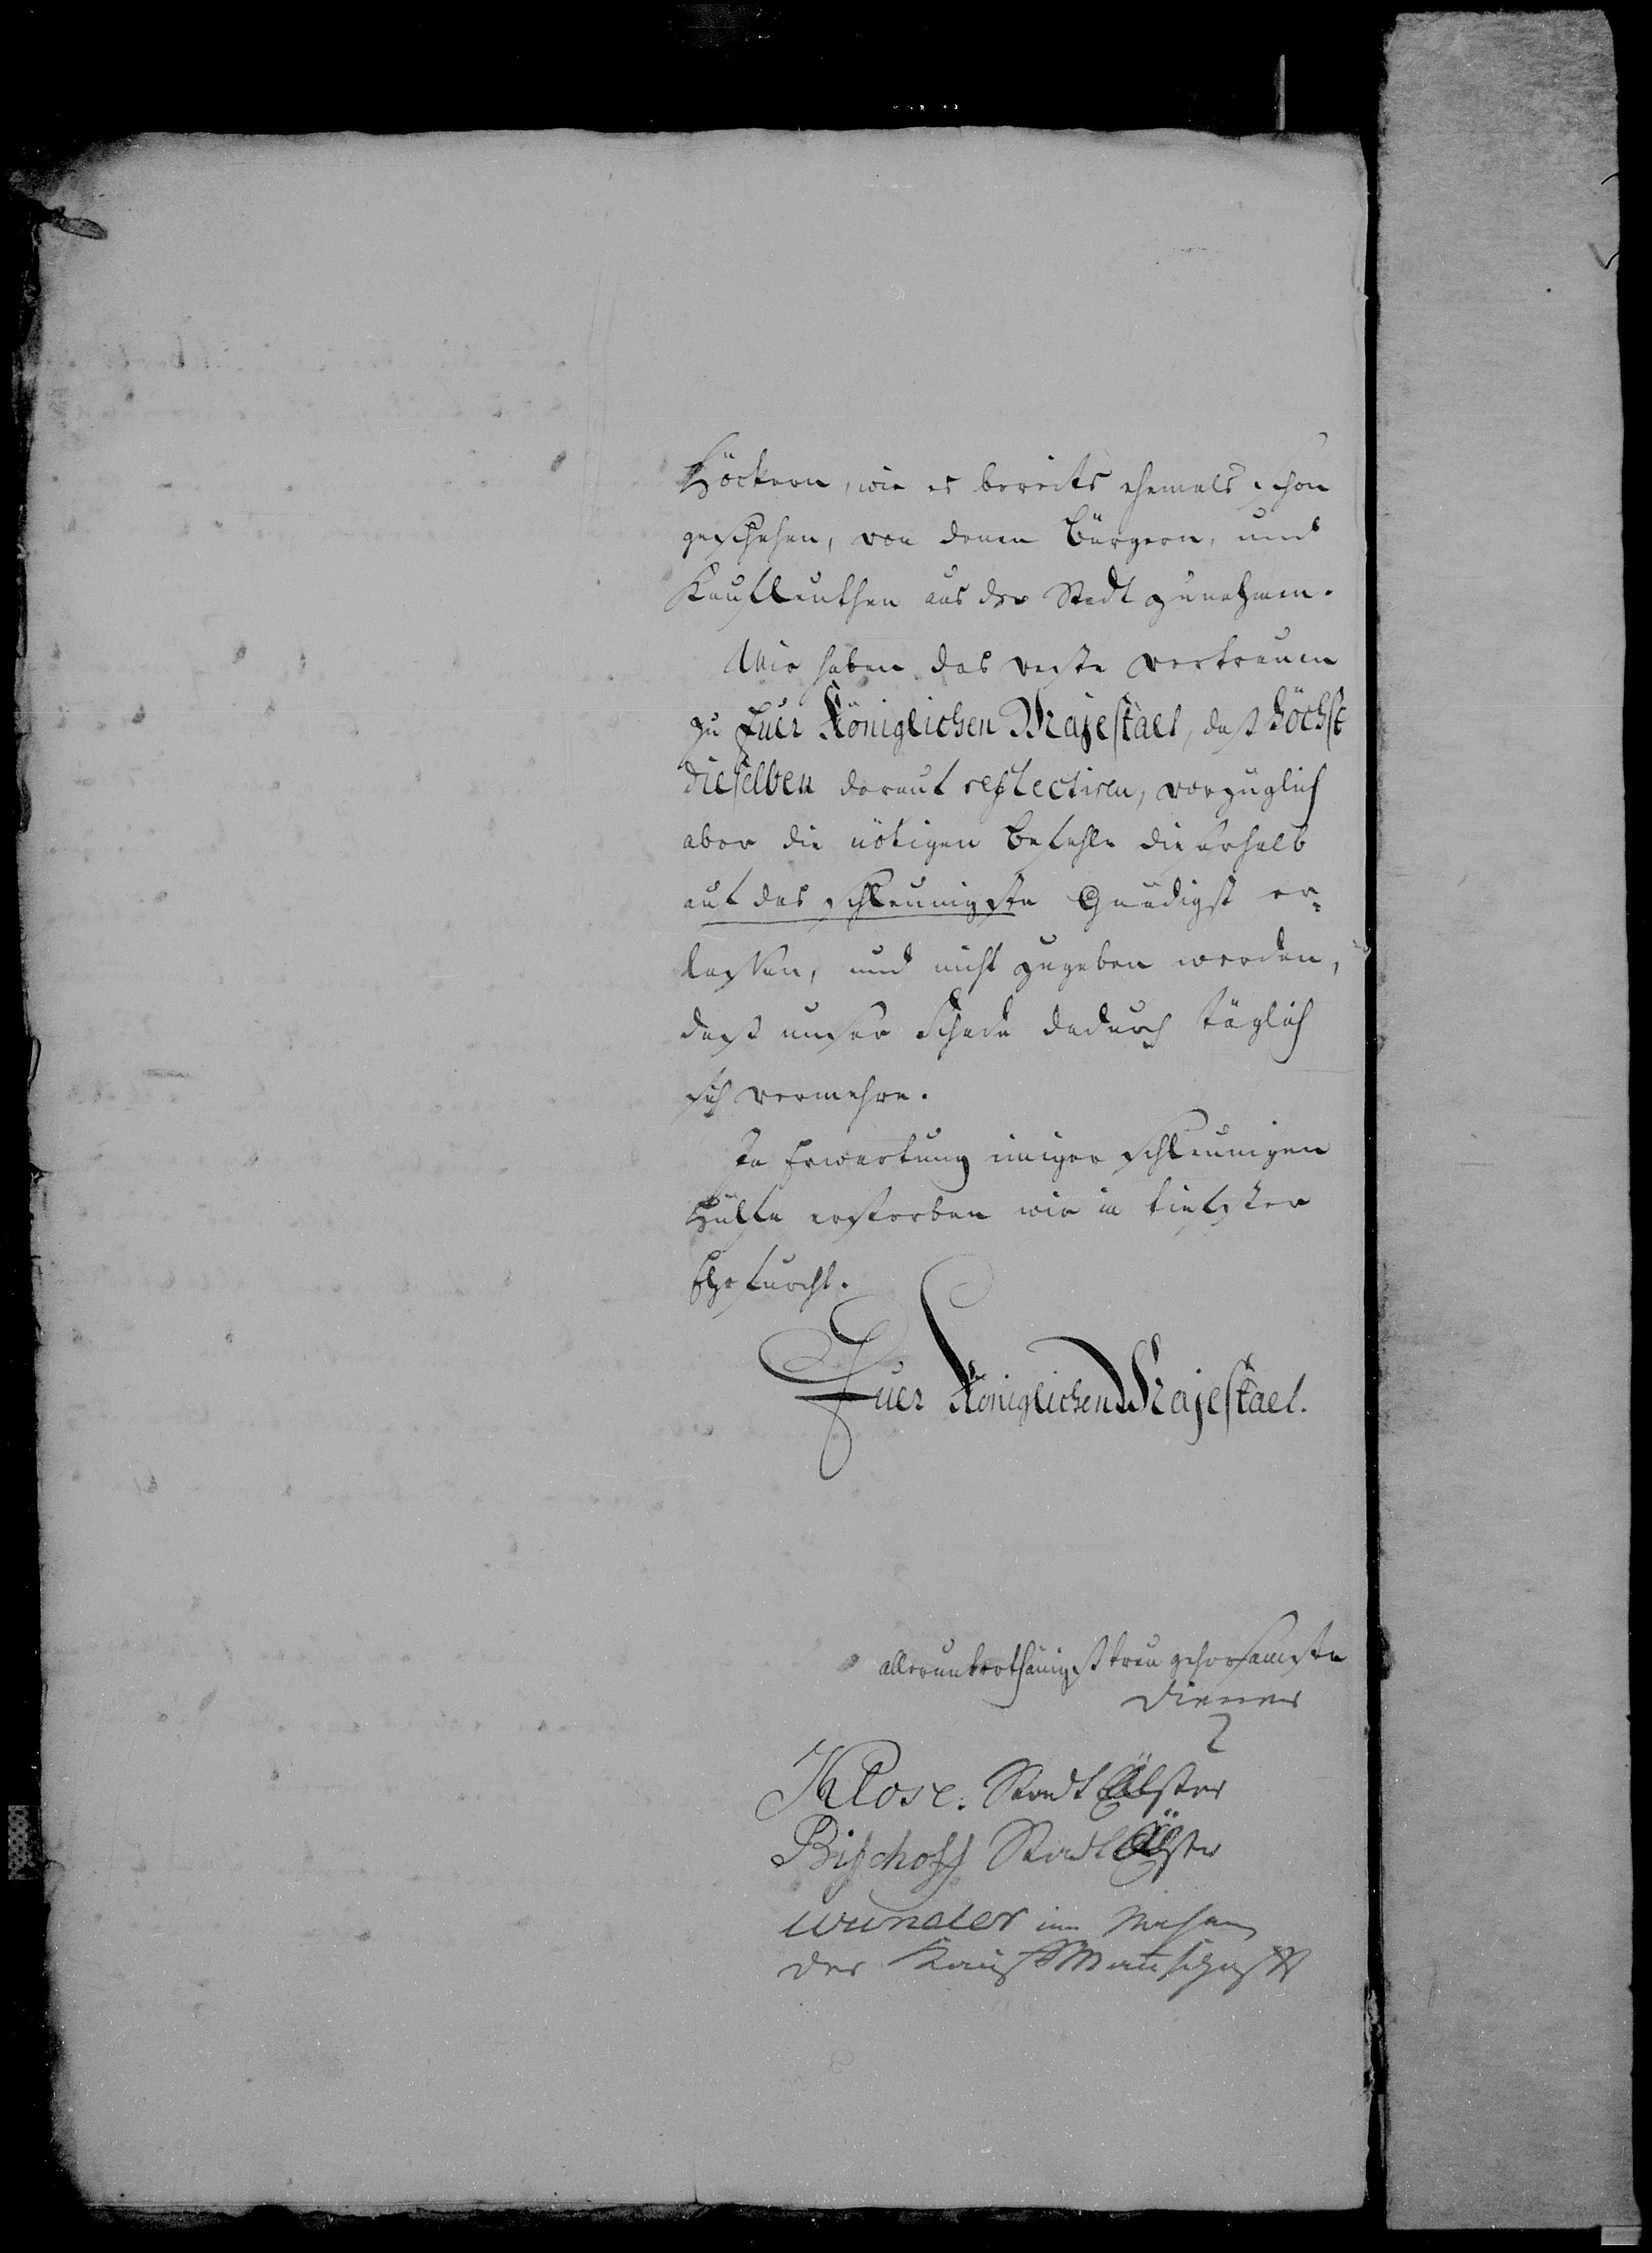 Höckern, wie es bereits ehemals schon
geschehen, von denen Bürgern, und
Kaufleuthen aus der Stadt zunehmen.
Wir haben das veste vertrauen
zu Euer Königlichen Majestaet, daß Höchst
dieselben darauf reflectiren, vorzüglich
aber die nötigen Befehle dieserhalb
auf das schleunigste Gnädigst er-
lassen, und nicht zugeben werden,
daß unser Schade dadurch täglich
sich vermehre.
In Erwartung einiger schleunigen
Hülfe ersterben wir in tiefster
Ehrfurcht.
Euer Königlichen Majestaet.
allerunterthänigst treu gehorsamste
Diener
Klose. Stadt Älster
Bischoff Stadt Älster
Wunder im Nahmen
der KauffManschafft